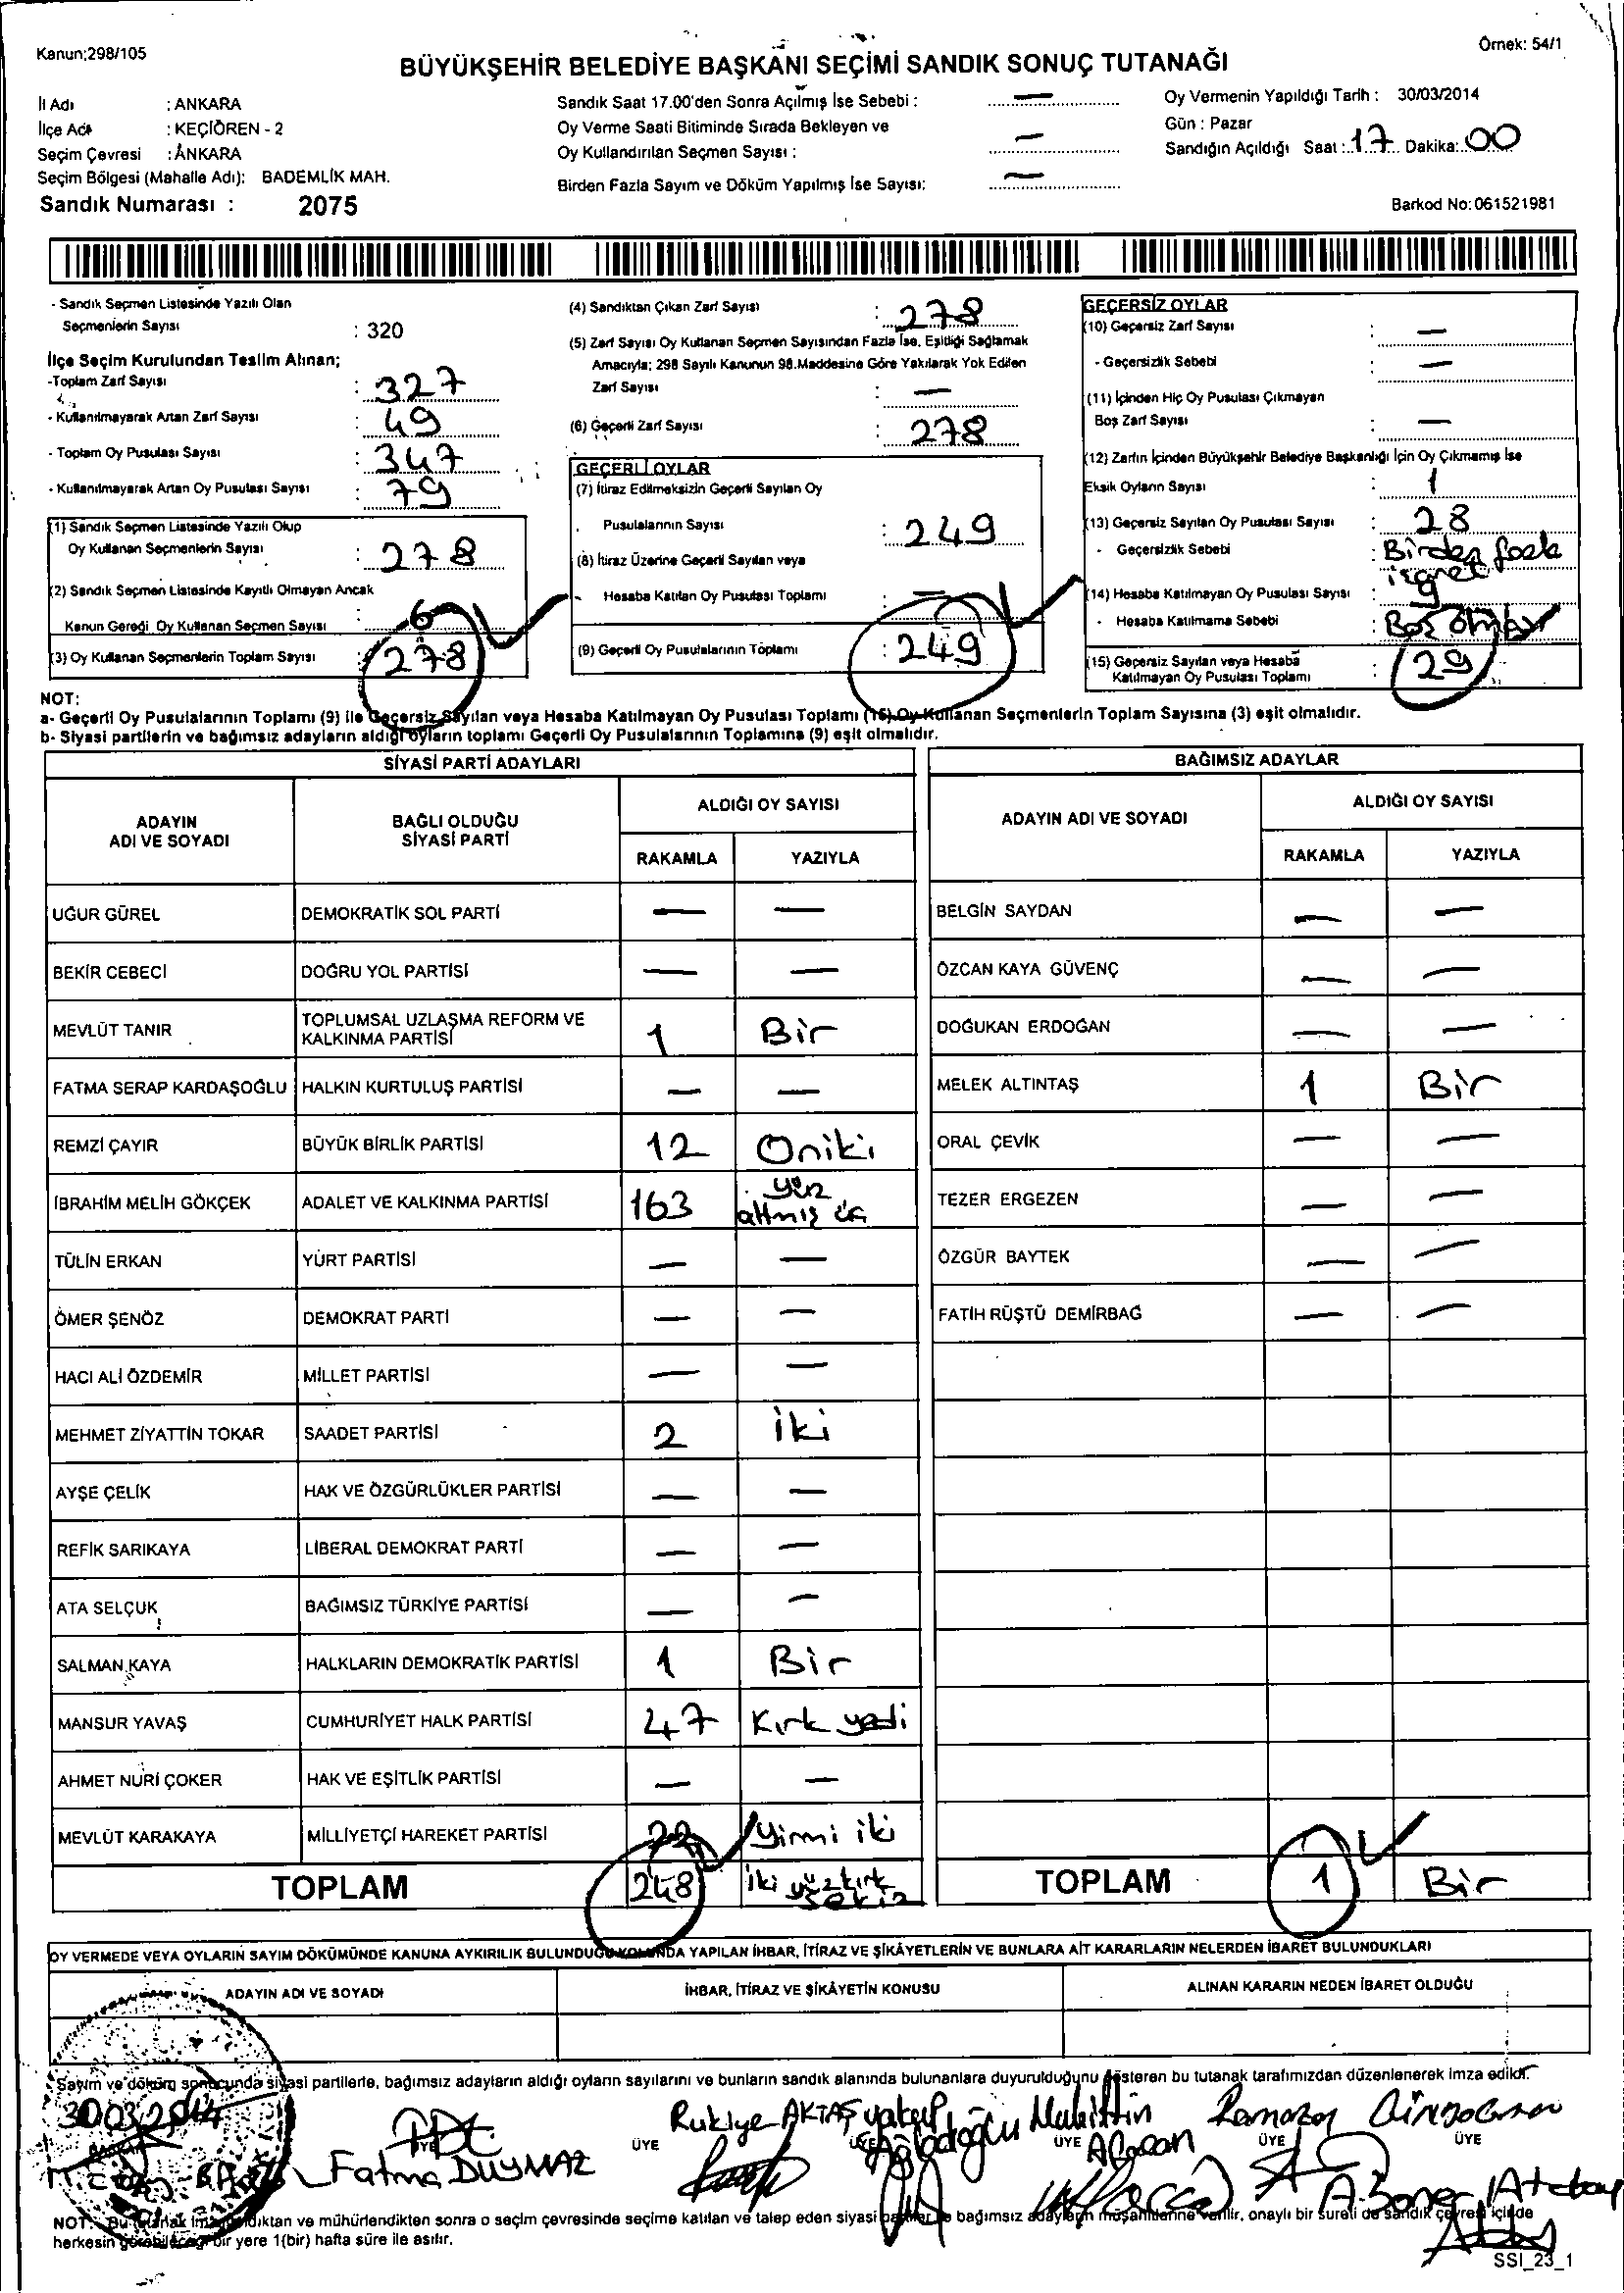 Kanun:298/105
Örnek: 54/1
BÜYÜKŞEHİR BELEDİYE BAŞKANI SEÇİMİ SANDIK SONUÇ TUTANAĞI
İl Adı : ANKARA
İlçe Adı : KEÇİÖREN - 2
Seçim Çevresi : ANKARA
Seçim Bölgesi (Mahalle Adı): BADEMLİK MAH.
Sandık Numarası : 2075
Sandık Saat 17.00'den Sonra Açılmış İse Sebebi : —
Oy Verme Saati Bitiminde Sırada Bekleyen ve
Oy Kullandırılan Seçmen Sayısı : —
Birden Fazla Sayım ve Döküm Yapılmış İse Sayısı: —
Oy Vermenin Yapıldığı Tarih : 30/03/2014
Gün : Pazar
Sandığın Açıldığı Saat : 17 Dakika: 00
Barkod No: 061521981
- Sandık Seçmen Listesinde Yazılı Olan
Seçmenlerin Sayısı : 320
İlçe Seçim Kurulundan Teslim Alınan;
-Toplam Zarf Sayısı : 327
- Kullanılmayarak Artan Zarf Sayısı : 49
- Toplam Oy Pusulası Sayısı : 347
- Kullanılmayarak Artan Oy Pusulası Sayısı : 79
(1) Sandık Seçmen Listesinde Yazılı Olup
Oy Kullanan Seçmenlerin Sayısı : 278
(2) Sandık Seçmen Listesinde Kayıtlı Olmayan Ancak
Kanun Gereği Oy Kullanan Seçmen Sayısı : 6
(3) Oy Kullanan Seçmenlerin Toplam Sayısı : 278
(4) Sandıktan Çıkan Zarf Sayısı : 278
(5) Zarf Sayısı Oy Kullanan Seçmen Sayısından Fazla İse, Eşitliği Sağlamak
Amacıyla; 298 Sayılı Kanunun 98.Maddesine Göre Yakılarak Yok Edilen
Zarf Sayısı : —
(6) Geçerli Zarf Sayısı : 278
GEÇERLİ OYLAR
(7) İtiraz Edilmeksizin Geçerli Sayılan Oy
Pusulalarının Sayısı : 249
(8) İtiraz Üzerine Geçerli Sayılan veya
Hesaba Katılan Oy Pusulası Toplamı : —
(9) Geçerli Oy Pusulalarının Toplamı : 249
GEÇERSİZ OYLAR
(10) Geçersiz Zarf Sayısı : —
- Geçersizlik Sebebi : —
(11) İçinden Hiç Oy Pusulası Çıkmayan
Boş Zarf Sayısı : —
(12) Zarfın İçinden Büyükşehir Belediye Başkanlığı İçin Oy Çıkmamış İse
Eksik Oyların Sayısı : 1
(13) Geçersiz Sayılan Oy Pusulası Sayısı : 28
- Geçersizlik Sebebi : Birden fazla
işaret
(14) Hesaba Katılmayan Oy Pusulası Sayısı : 9
- Hesaba Katılmama Sebebi : Boş
(15) Geçersiz Sayılan veya Hesaba
Katılmayan Oy Pusulası Toplamı : 29
NOT:
a- Geçerli Oy Pusulalarının Toplamı (9) ile Geçersiz Sayılan veya Hesaba Katılmayan Oy Pusulası Toplamı (15) Oy Kullanan Seçmenlerin Toplam Sayısına (3) eşit olmalıdır.
b- Siyasi partilerin ve bağımsız adayların aldığı oyların toplamı Geçerli Oy Pusulalarının Toplamına (9) eşit olmalıdır.
SİYASİ PARTİ ADAYLARI
ADAYIN ADI VE SOYADI BAĞLI OLDUĞU SİYASİ PARTİ ALDIĞI OY SAYISI
RAKAMLA YAZIYLA
UĞUR GÜREL DEMOKRATİK SOL PARTİ — —
BEKİR CEBECİ DOĞRU YOL PARTİSİ — —
MEVLÜT TANIR TOPLUMSAL UZLAŞMA REFORM VE KALKINMA PARTİSİ 1 Bir
FATMA SERAP KARDAŞOĞLU HALKIN KURTULUŞ PARTİSİ — —
REMZİ ÇAYIR BÜYÜK BİRLİK PARTİSİ 12 Oniki
İBRAHİM MELİH GÖKÇEK ADALET VE KALKINMA PARTİSİ 163 yüz altmış üç
TÜLİN ERKAN YURT PARTİSİ — —
ÖMER ŞENÖZ DEMOKRAT PARTİ — —
HACI ALİ ÖZDEMİR MİLLET PARTİSİ — —
MEHMET ZİYATTİN TOKAR SAADET PARTİSİ 2 iki
AYŞE ÇELİK HAK VE ÖZGÜRLÜKLER PARTİSİ — —
REFİK SARIKAYA LİBERAL DEMOKRAT PARTİ — —
ATA SELÇUK BAĞIMSIZ TÜRKİYE PARTİSİ — —
SALMAN KAYA HALKLARIN DEMOKRATİK PARTİSİ 1 Bir
MANSUR YAVAŞ CUMHURİYET HALK PARTİSİ 47 Kırk yedi
AHMET NURİ ÇOKER HAK VE EŞİTLİK PARTİSİ — —
MEVLÜT KARAKAYA MİLLİYETÇİ HAREKET PARTİSİ 22 Yirmi iki
TOPLAM 248 iki yüz kırk sekiz
BAĞIMSIZ ADAYLAR
ADAYIN ADI VE SOYADI ALDIĞI OY SAYISI
RAKAMLA YAZIYLA
BELGİN SAYDAN — —
ÖZCAN KAYA GÜVENÇ — —
DOĞUKAN ERDOĞAN — —
MELEK ALTINTAŞ 1 Bir
ORAL ÇEVİK — —
TEZER ERGEZEN — —
ÖZGÜR BAYTEK — —
FATİH RÜŞTÜ DEMİRBAĞ — —
TOPLAM 1 Bir
OY VERMEDE VEYA OYLARIN SAYIM DÖKÜMÜNDE KANUNA AYKIRILIK BULUNDUĞU KOLUNDA YAPILAN İHBAR, İTİRAZ VE ŞİKÂYETLERİN VE BUNLARA AİT KARARLARIN NELERDEN İBARET BULUNDUKLARI
ADAYIN ADI VE SOYADI İHBAR, İTİRAZ VE ŞİKÂYETİN KONUSU ALINAN KARARIN NEDEN İBARET OLDUĞU
Sayım ve döküm sonucunda siyasi partilerle, bağımsız adayların aldığı oyların sayılarını ve bunların sandık alanında bulunanlara duyurulduğunu gösteren bu tutanak tarafımızdan düzenlenerek imza edildi.
30.03.2014
BAŞKAN ÜYE ÜYE ÜYE ÜYE ÜYE ÜYE
Fatma DUYMAZ
Rukiye AKTAŞ
Yakup
Muhittin
Ramazan
NOT: Bu tutanak imzalandıktan ve mühürlendikten sonra o seçim çevresinde seçime katılan ve talep eden siyasi partiler ile bağımsız adayların müşahitlerine verilir, onaylı bir sureti de sandık çevresi içinde
herkesin görebileceği bir yere 1(bir) hafta süre ile asılır.
SSI_23_1